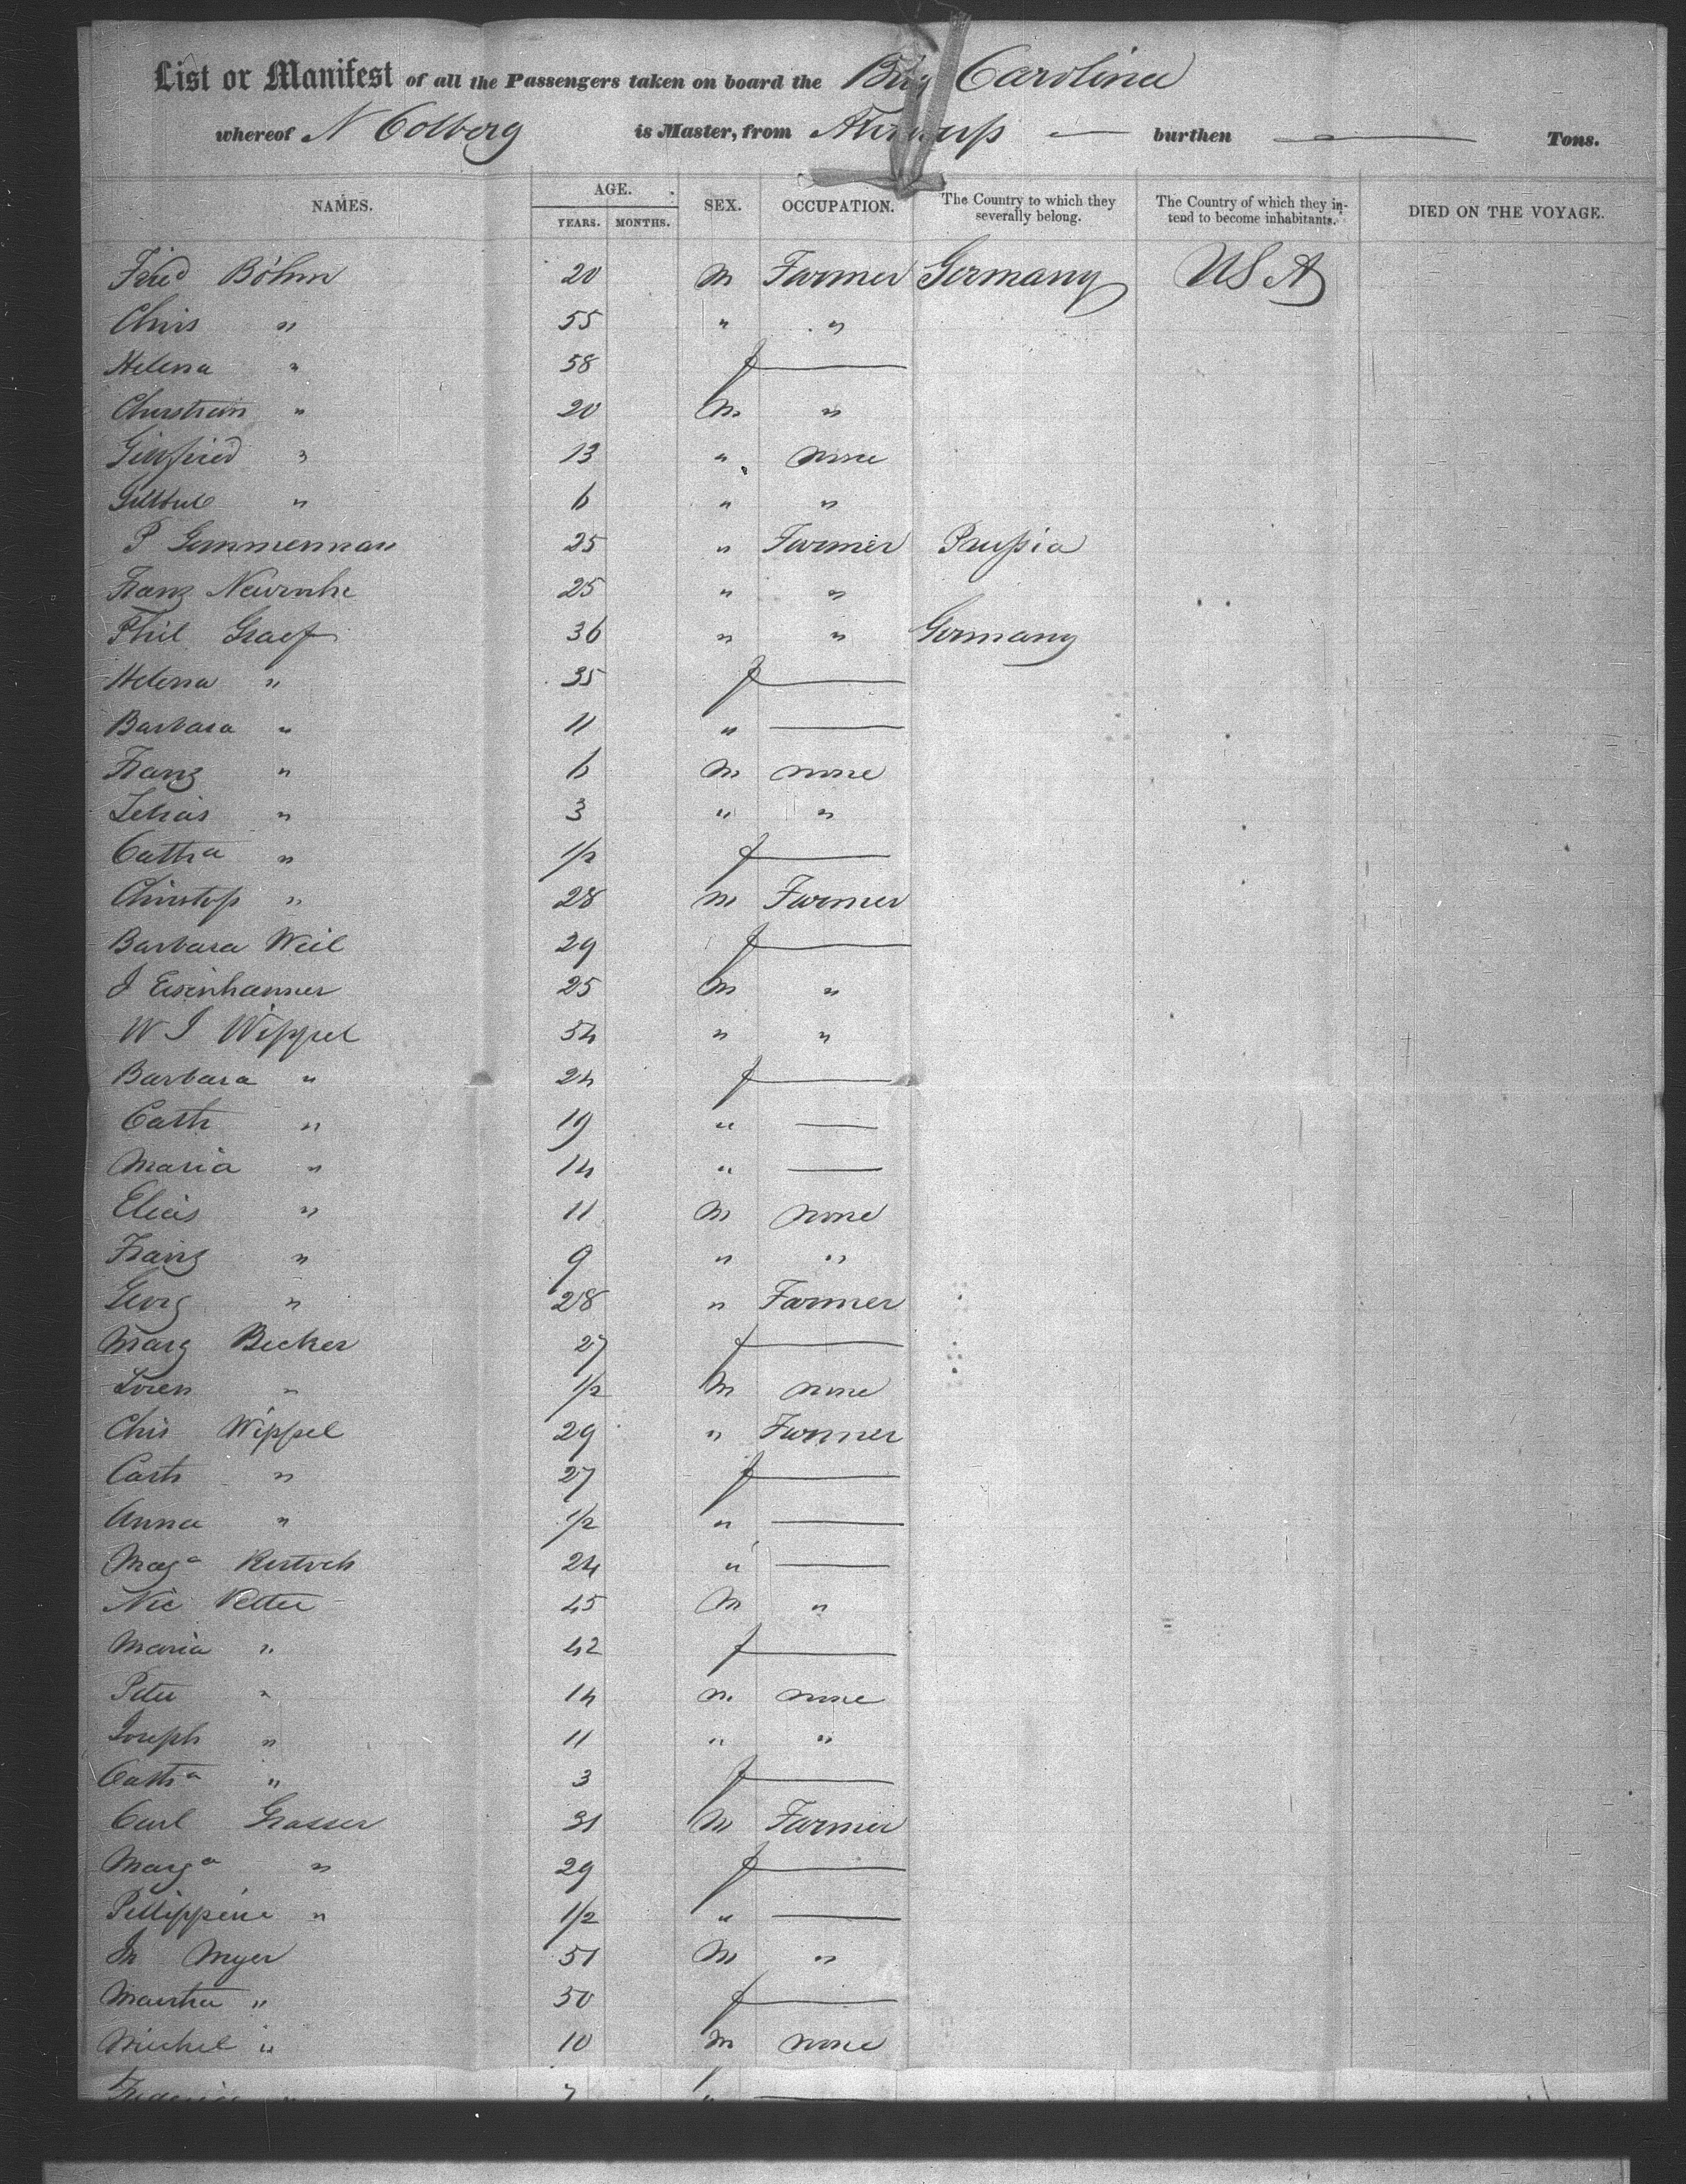 List or Manifest of all the Passengers taken on board the Brig Carolina
whereof N Colberg is Master, from Antwerp — burthen — Tons.
NAMES. AGE. SEX. OCCUPATION. The Country to which they severally belong. The Country of which they intend to become inhabitants. DIED ON THE VOYAGE.
YEARS. MONTHS.
Fred Böhm 20 m Farmer Germany USA
Chris " 55 " "
Helena " 58 f —
Christian " 20 m "
" 13 " none
" 6 " "
P Gemmerman 25 " Farmer Prussia
Franz 25 " "
Phil Graef 36 " " Germany
Helena " 35 f —
Barbara " 11 " —
Franz " 6 m none
" 3 " "
Catha " 1/2 f —
Christop " 28 m Farmer
Barbara Weil 29 f —
J Eisenhamer 25 m "
W J Wippel 54 " "
Barbara " 24 f —
Cath " 19 " —
Maria " 14 " —
Elias " 11 m none
Franz " 9 " "
Georg " 28 " Farmer
Marg Becker 27 f —
Loren " 1/2 m none
Chris Wippel 29 " Farmer
Cath " 27 f —
Anna " 1/2 " —
Maga 24 " —
Nic Petter 45 m "
Maria " 42 f —
Peter " 14 m none
Joseph " 11 " "
Catha " 3 f —
Carl Grasser 31 m Farmer
Marga " 29 f —
Pillippine " 1/2 " —
Jn Myer 51 m "
Martha " 50 f —
Michel " 10 m none
" 7 " —